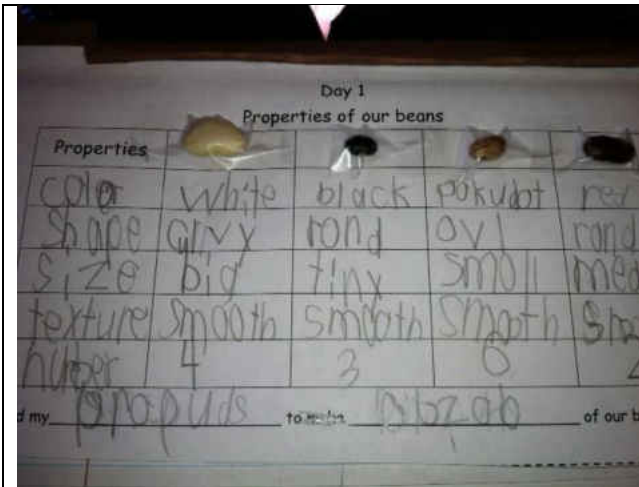 Day 1
Properties of our beans
Properties
color white black pokudot red
shape curvy rond ovl rond
size big tiny smoll med
texture smooth smooth smooth
nuber 4 3 6
d my to of our b